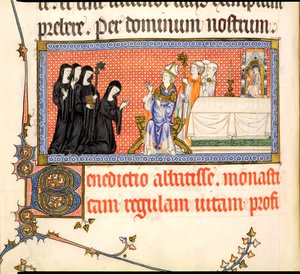 prelere. Per dominum nostrum.
Benedictio abbatisse. monasti
cam regulam uitam profi